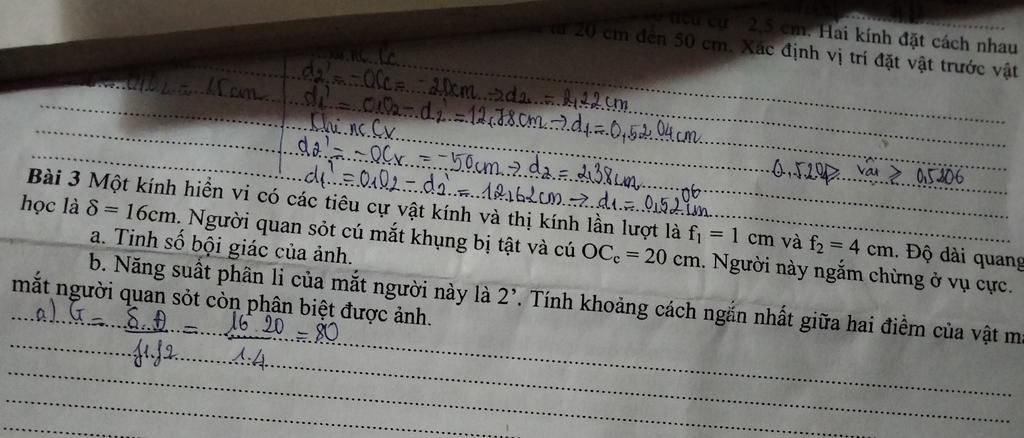 tiêu cự 2,5 cm. Hai kính đặt cách nhau
từ 20 cm đến 50 cm. Xác định vị trí đặt vật trước vật
d2' = -OCc = -20cm → d2 = 2,22cm
O1O2 = 15cm
d1' = O1O2 - d2 = 12,78cm → d1 = 0,5204cm
Khi nc Cv
d2' = -OCv = -50cm → d2 = 2,38cm
0,5204 ≥ vải ≥ 0,5206
d1' = O1O2 - d2 = 12,62cm → d1 = 0,5206cm
Bài 3 Một kính hiển vi có các tiêu cự vật kính và thị kính lần lượt là f₁ = 1 cm và f₂ = 4 cm. Độ dài quang
học là δ = 16cm. Người quan sót cú mắt khụng bị tật và cú OCc = 20 cm. Người này ngắm chừng ở vụ cực.
a. Tinh số bội giác của ảnh.
b. Năng suất phân li của mắt người này là 2'. Tính khoảng cách ngắn nhất giữa hai điểm của vật mà
mắt người quan sót còn phân biệt được ảnh.
a) G = δ.Đ / f1.f2 = 16.20 / 1.4 = 80